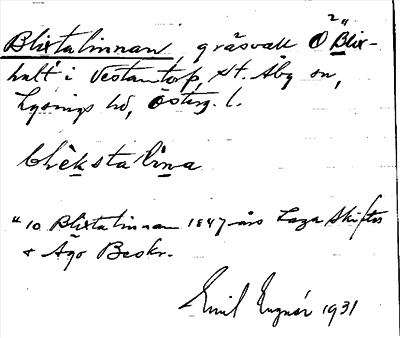 Blixtalinnan. gräsvall Ö² Blix-
halt i Vestantorp, St. Åby sn,
Lysings hd, Österg. l.
blìkstali̇̀na
"10 Blixtalinnan 1847 års Laga Skiftes
& Ägo Beskr.
Emil 1931